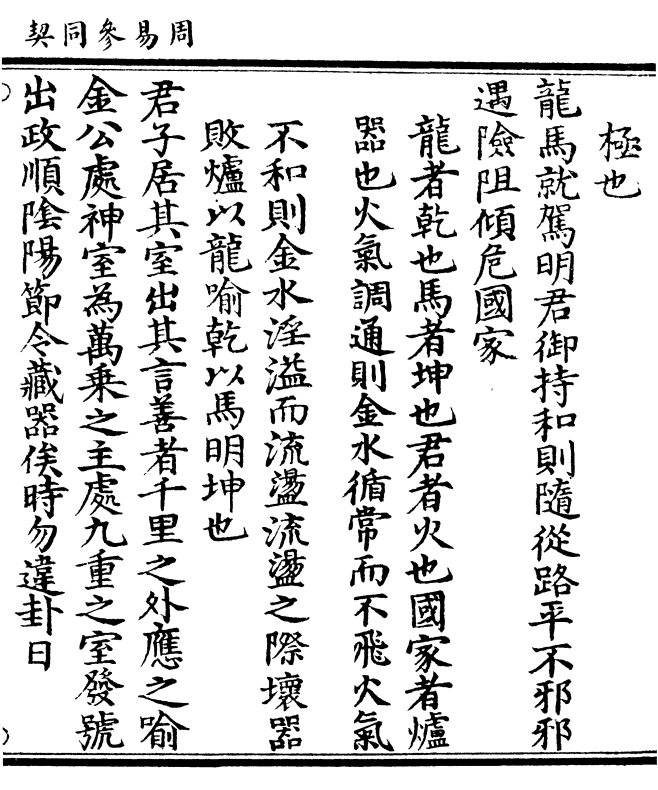 周易參同契
極也
龍馬就駕明君御持和則隨從路平不邪邪
遇險阻傾危國家
龍者乾也馬者坤也君者火也國家者爐
器也火氣調通則金水循常而不飛火氣
不和則金水淫溢而流盪流盪之際壞器
敗爐以龍喻乾以馬明坤也
君子居其室出其言善者千里之外應之喻
金公處神室為萬乘之主處九重之室發號
出政順陰陽節令藏器俟時勿違卦日